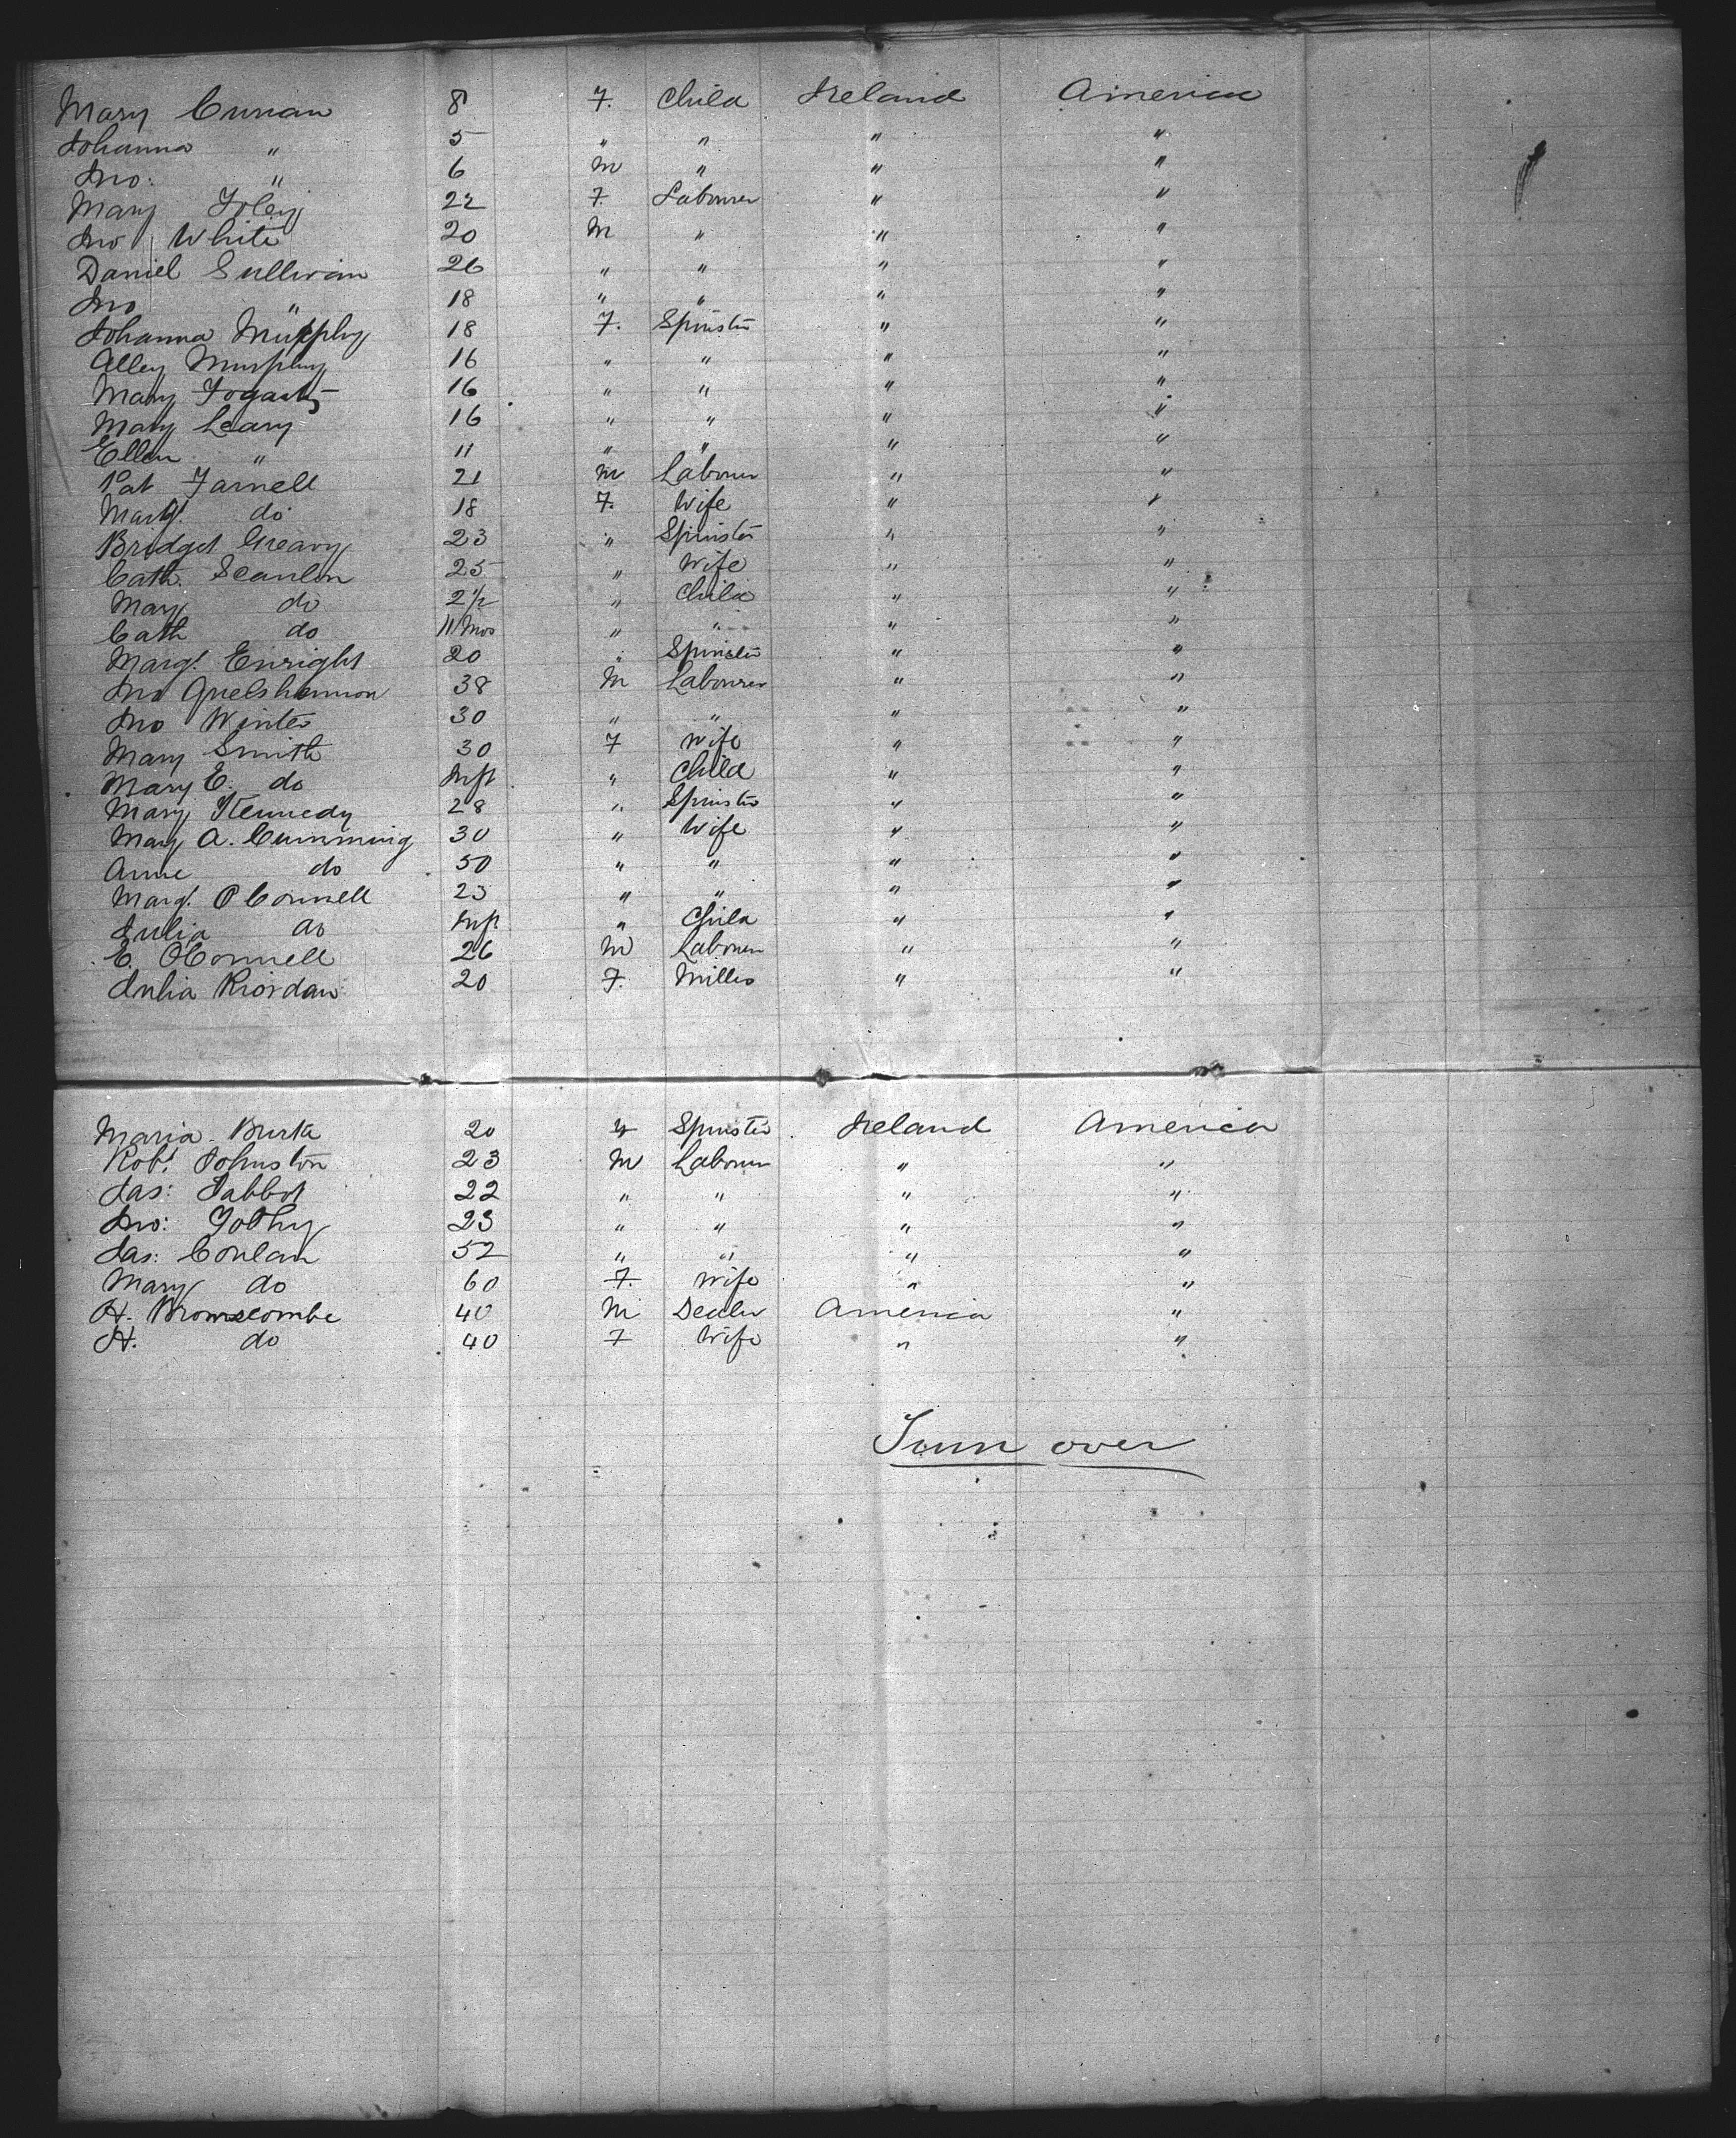 Mary Curran 8 F. Child Ireland America
Johanna " 5 " " " "
Jno: " 6 M " " "
Mary Foley 22 F. Labourer " "
Jno White 20 M " " "
Daniel Sullivan 26 " " " "
Jno " 18 " " " "
Johanna Murphy 18 F. Spinster " "
Alley Murphy 16 " " " "
Mary Fogarty 16 " " " "
Mary Leary 16 " " " "
Ellen " 11 " " " "
Pat Farnell 21 M Labourer " "
Margt. do 18 F. Wife " "
Bridget Greavy 23 " Spinster " "
Cath. Scanlon 25 " Wife " "
Mary do 2 1/2 " Child " "
Cath do 11 Mos " " " "
Margt. Enright 20 " Spinster " "
Jno 38 M Labourer " "
Jno Winter 30 " " " "
Mary Smith 30 F Wife " "
Mary E. do Inft " Child " "
Mary Kennedy 28 " Spinster " "
Mary A. Cumming 30 " Wife " "
Anne do 50 " " " "
Margt. O Connell 23 " " " "
Julia do Inft " Child " "
E. OConnell 26 M Labourer " "
Julia Riordan 20 F. " "
Maria Burke 20 F Spinster Ireland America
Robt. Johnston 23 M Labourer " "
Jas: 22 " " " "
Jno: 23 " " " "
Jas: Conlan 52 " " " "
Mary do 60 F. Wife " "
H. Bromscombe 40 M Dealer America "
H. do 40 F Wife " "
Turn over